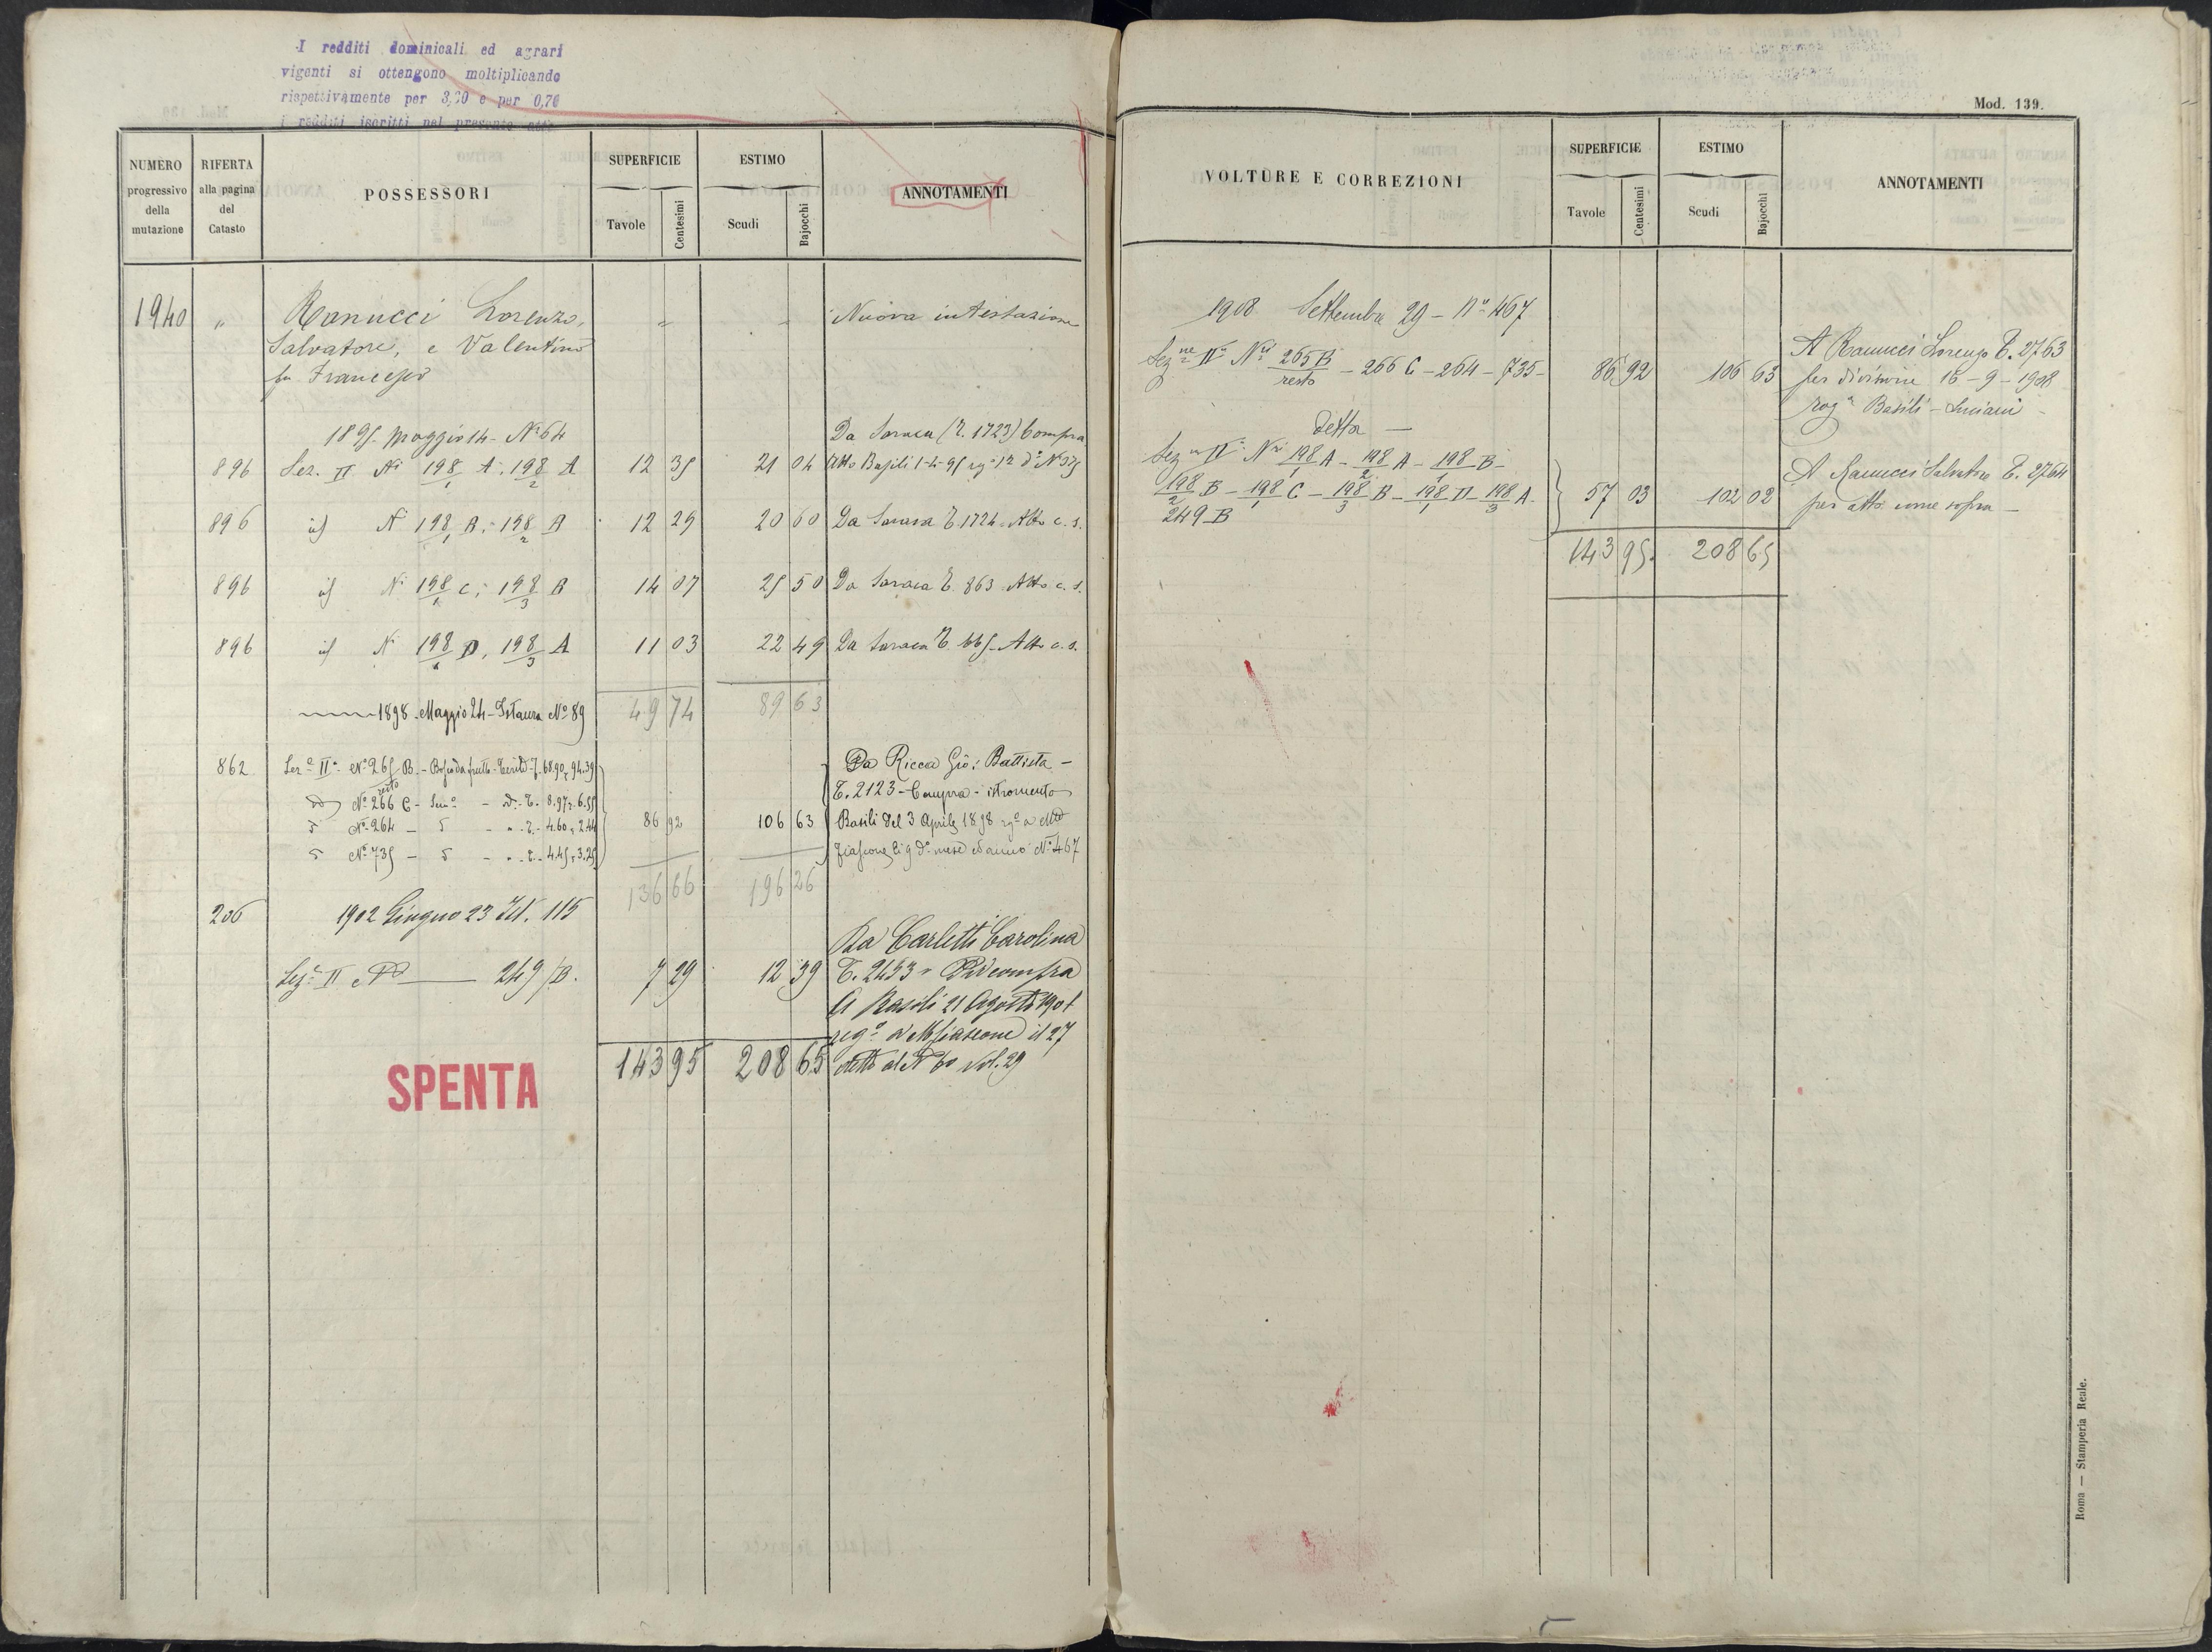 I redditi dominicali ed agrari
vigenti si ottengono moltiplicando
rispettivamente per 3,20 e per 0,70
i redditi iscritti nel presente atto
NUMERO progressivo della mutazione
RIFERTA alla pagina del Catasto
POSSESSORI
SUPERFICIE
Tavole Centesimi
ESTIMO
Scudi Bajocchi
ANNOTAMENTI
1940 " Ranucci Lorenzo, " " Nuova intestazione
Salvatore, e Valentino
fu Francesco
1895 Maggio 14 - N° 64
Da Saraca (T. 1723) Compra
896 Sez. II Ni 198/1 A; 198/2 A 12 35 21 04 Atto Basili 1-4-95 rg° 12 d° N° 525
896 id N 198/1 B; 198/2 B 12 29 20 60 Da Saraca T. 1724 Atto c. s.
896 id Ni 198/1 C; 198/3 B 14 07 25 50 Da Saraca T. 863 Atto c. s.
896 id Ni 198/1 D, 198/3 A 11 03 22 49 Da Saraca T. 665 Atto c. s.
49 74 89 63
1898 - Maggio 24 - Istanza N° 89
862 Sez.e II° N° 265 B - resto Bosco da frutto - T. 68.90, 94.39
N° 266 C - Sem° - T. 8.97, 6.55
N° 264 - T. 4.60, 2.44
N° 735 - T. 4.45, 3.25
86 92 106 63
Da Ricca Gio: Battista -
T. 2123 - Compra - istromento
Basili del 3 Aprile 1898 rg° a Mte
fiascone li 9 d° mese ed anno N° 467
136 66 196 26
206 1902 Giugno 23 Ist. 115
Sez.e II N° 249/B. 7 29 12 39
Da Carletti Carolina
T. 2453 Per compra
A Basili 21 Agosto 1901
reg° a Mfiascone il 27
detto al N° 60 Vol. 29
143 95 208 65
SPENTA
Mod. 139.
VOLTURE E CORREZIONI
SUPERFICIE
Tavole Centesimi
ESTIMO
Scudi Bajocchi
ANNOTAMENTI
1908 Settembre 29 - N° 467
Sezne IIa Ni 265 B/resto - 266 C - 264 - 735 - 86 92 106 63
A Ranucci Lorenzo T. 2763
per divisione 16 - 9 - 1908
rog° Basili - Luciani -
Detta -
Sezne IIa Ni 198/1 A - 198/2 A - 198/1 B -
198/2 B - 198/1 C - 198/3 B - 198/1 D - 198/3 A.
249 B
57 03 102 02
A Ranucci Salvatore T. 2764
per atto come sopra -
143 95 208 65
Roma — Stamperia Reale.